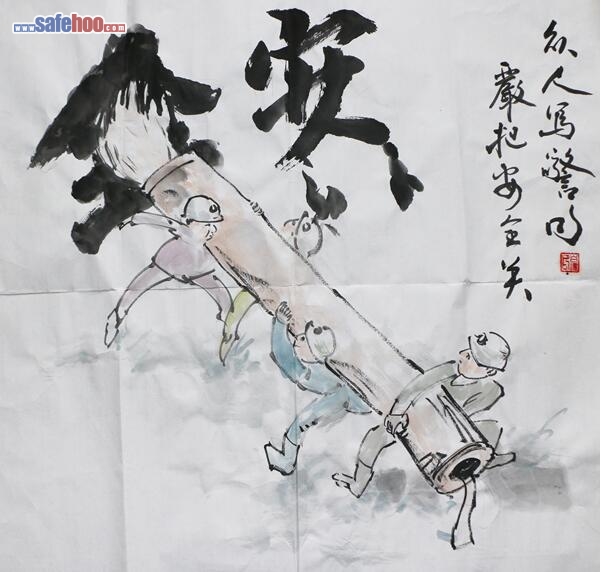 www.safehoo.com
众人写警句
嚴把安全关
安全